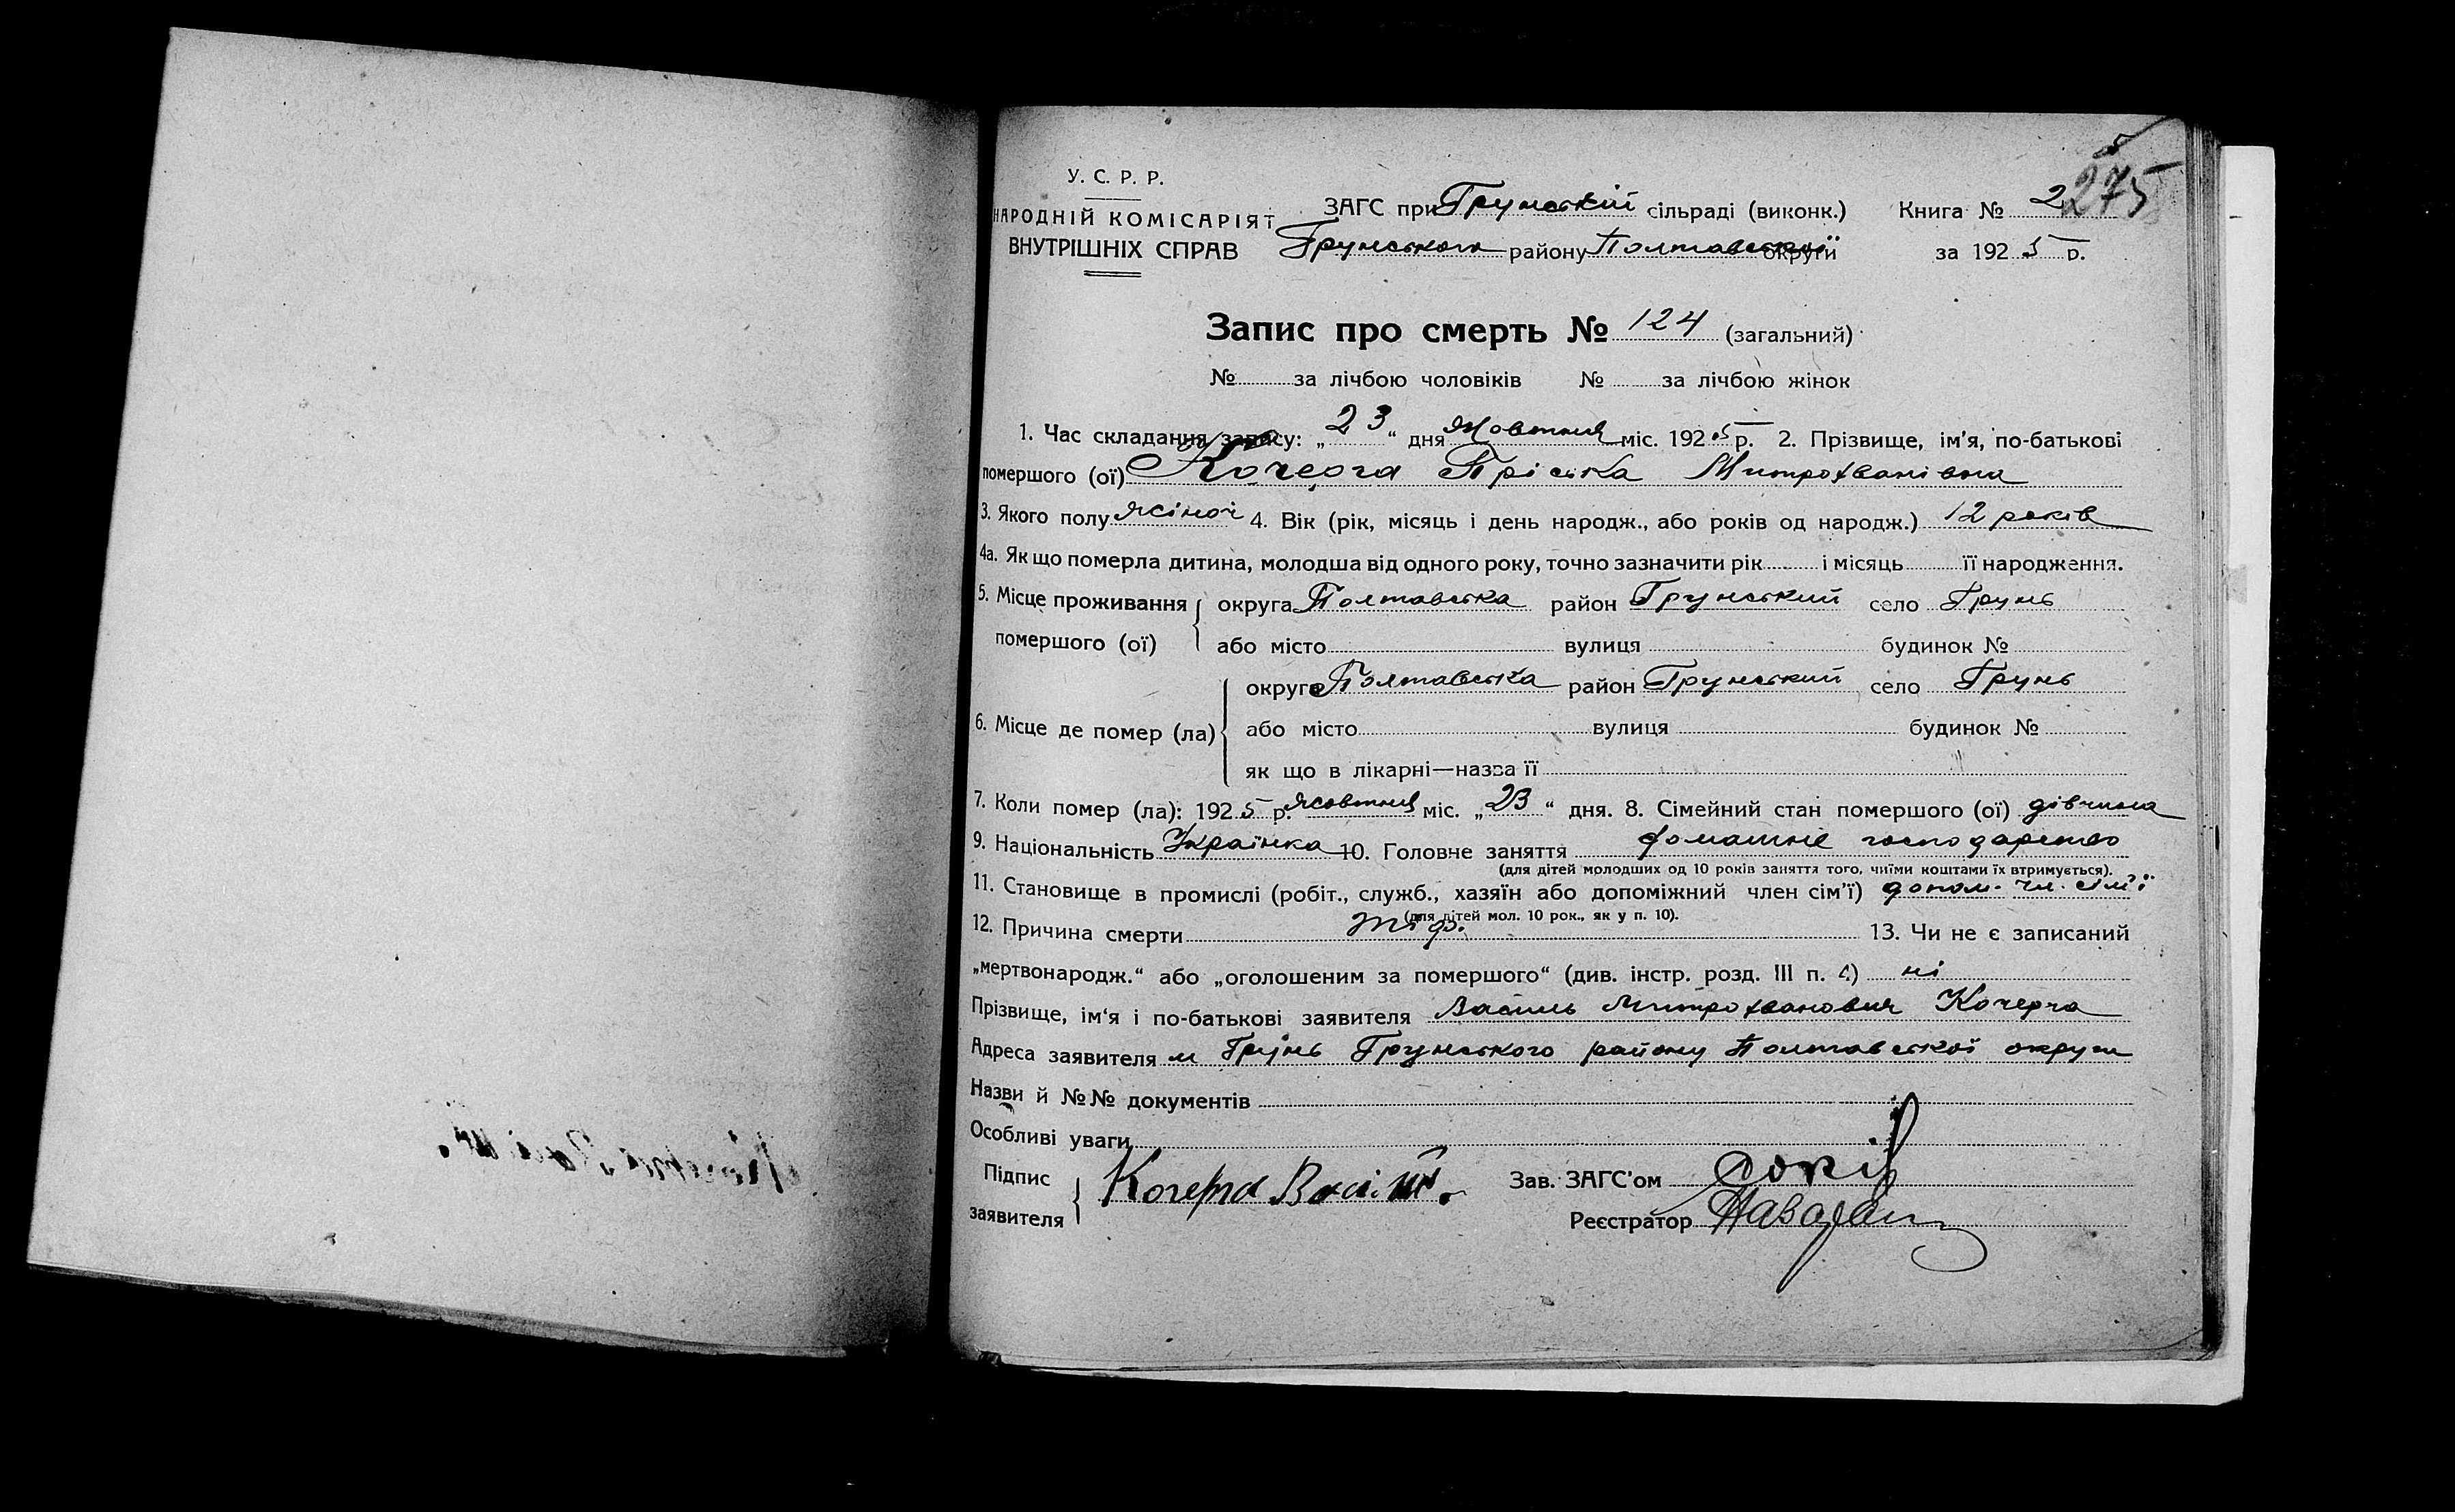 5
275
У. С. Р. Р.
НАРОДНІЙ КОМІСАРІЯТ
ВНУТРІШНІХ СПРАВ
ЗАГС при Грунській сільраді (виконк.) Книга № 2
Грунського району Полтавської округи за 1925 р.
Запис про смерть № 124 (загальний)
№ за лічбою чоловіків № за лічбою жінок
1. Час складання запису: „23“ дня Жовтня міс. 1925 р. 2. Прізвище, ім'я, по-батькові
помершого (ої) Кочерга Пріська Митрохванівна
3. Якого полу жіноч 4. Вік (рік, місяць і день народж., або років од народж.) 12 років
4а. Як що померла дитина, молодша від одного року, точно зазначити рік і місяць її народження.
5. Місце проживання округа Полтавська район Грунський село Грунь
помершого (ої) або місто вулиця будинок №
округа Полтавська район Грунський село Грунь
6. Місце де помер (ла) або місто вулиця будинок №
як що в лікарні—назва її
7. Коли помер (ла): 1925 р. жовтня міс. „23“ дня. 8. Сімейний стан помершого (ої) дівчина
9. Національність Українка 10. Головне заняття домашнє господарство
(для дітей молодших од 10 років заняття того, чиїми коштами їх втримується).
11. Становище в промислі (робіт., служб., хазяїн або допоміжний член сім'ї) допом. чл. сім'ї
(для дітей мол. 10 рок., як у п. 10).
12. Причина смерти тіф. 13. Чи не є записаний
„мертвонародж.“ або „оголошеним за помершого“ (див. інстр. розд. III п. 4) ні
Прізвище, ім'я і по-батькові заявителя Василь Митрохванович Кочерга
Адреса заявителя м Грунь Грунського району Полтавської округи
Назви й №№ документів
Особливі уваги
Підпис
заявителя Кочерга
Зав. ЗАГС'ом
Реєстратор